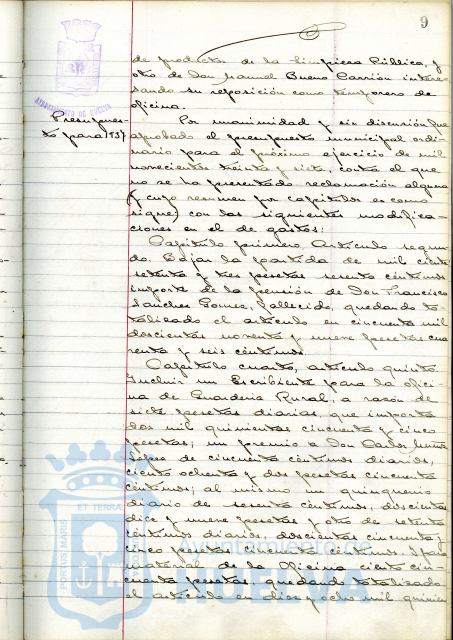 9
de productos de la Limpieza Pública, y
otro de Don Manuel Bueno Carrión intere-
sando su reposición como temporero de
oficina.
Presupues-
to para 1937
Por unanimidad y sin discusión fue
aprobado el presupuesto municipal ordi-
nario para el próximo ejercicio de mil
novecientos treinta y siete, contra el que
no se ha presentado reclamación alguna
(y cuyo resumen por capítulos es como
sigue) con las siguientes modifica-
ciones en el de gastos:
Capítulo primero. Artículo segun-
do. Bajar la partida de mil ciento
setenta y tres pesetas sesenta céntimos
importe de la pensión de Don Francisco
Sanchez Gomez, fallecido, quedando to-
talizado el artículo en cincuenta mil
doscientas noventa y nueve pesetas cua
renta y seis céntimos.
Capítulo cuarto, artículo quinto
Incluir un Escribiente para la ofici-
na de Guardería Rural, a razón de
siete pesetas diarias, que importa
dos mil quinientas cincuenta y cinco
pesetas; un premio a Don Carlos
Lopez de cincuenta céntimos diarios,
ciento ochenta y dos pesetas cincuenta
céntimos; al mismo un quinquenio
diario de sesenta céntimos, doscientas
diez y nueve pesetas y otro de setenta
céntimos diarios, doscientas cincuenta y
cinco pesetas cincuenta céntimos. Y para
material de la Oficina ciento cin-
cuenta pesetas, quedando totalizado
el artículo en diez y ocho mil quinien
AYUNTAMIENTO DE HUELVA
PORTUS MARIS ET TERRAE
Ayuntamiento de
HUELVA